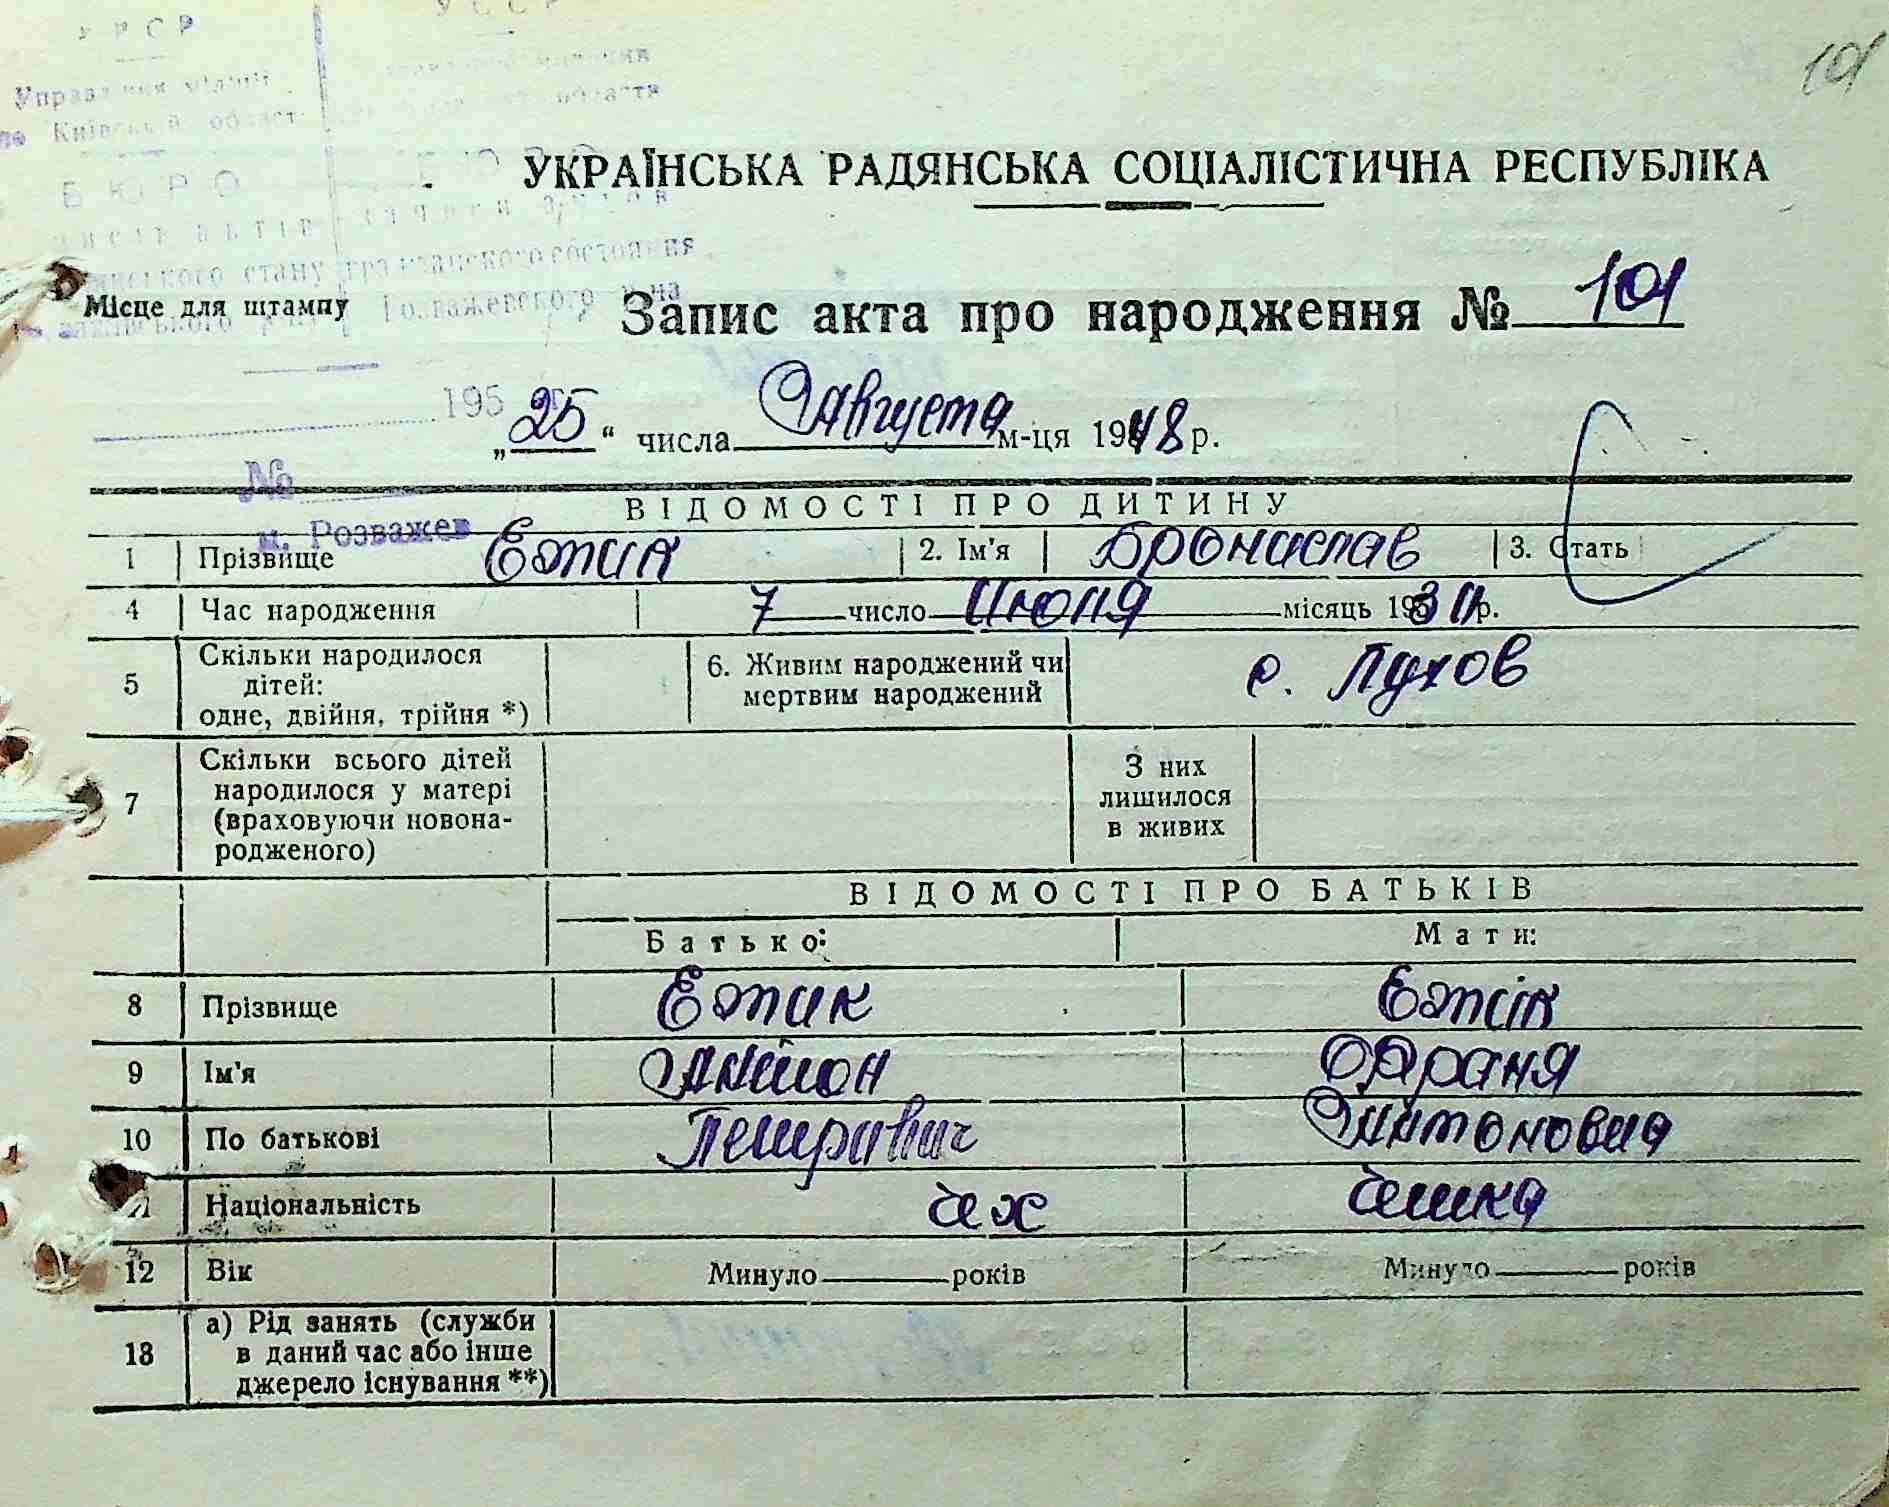 101
УРСР
УССР
Управління міліції
по Київській області области
БЮРО БЮРО
записів актів записи актов
стану гражданского состояния
Місце для штампу
УКРАЇНСЬКА РАДЯНСЬКА СОЦІАЛІСТИЧНА РЕСПУБЛІКА
Запис акта про народження № 101
195 г.
„25“ числа Августа м-ця 1948 р.
№
м. Розважев
ВІДОМОСТІ ПРО ДИТИНУ
1 Прізвище Ежик 2. Ім'я Бронислав 3. Стать
4 Час народження 7 число Июня місяць 193 р.
5 Скільки народилося дітей: одне, двійня, трійня *) 6. Живим народжений чи мертвим народжений с. Лухов
7 Скільки всього дітей народилося у матері (враховуючи новонародженого) З них лишилося в живих
ВІДОМОСТІ ПРО БАТЬКІВ
Батько: Мати:
8 Прізвище Ежик Ежік
9 Ім'я Антон Франя
10 По батькові Петрович Антоновна
11 Національність чех чешка
12 Вік Минуло років Минуло років
13 а) Рід занять (служби в даний час або інше джерело існування **)